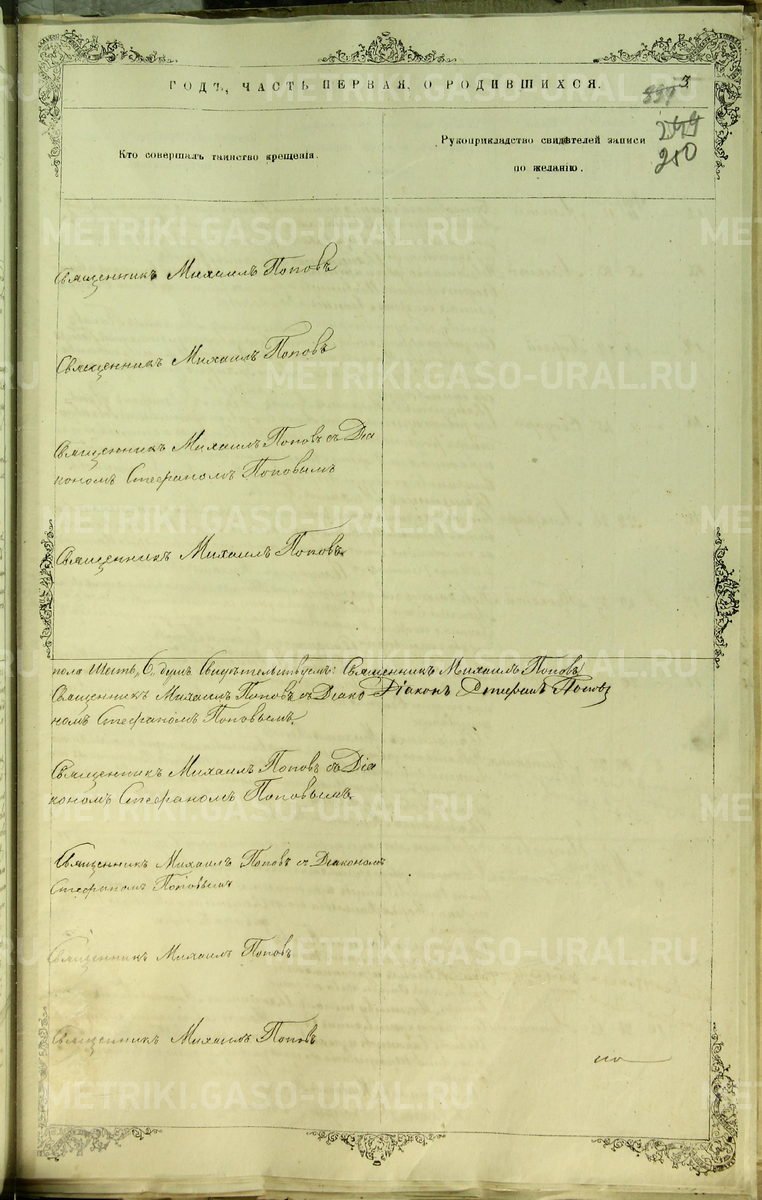 ГОДЪ, ЧАСТЬ ПЕРВАЯ, О РОДИВШИХСЯ.
3
337
249
250
Кто совершалъ таинство крещенія.
Рукоприкладство свидѣтелей записи
по желанію.
METRIKI.GASO-URAL.RU
Священникъ Михаилъ Поповъ
Священникъ Михаилъ Поповъ
METRIKI.GASO-URAL.RU
Священникъ Михаилъ Поповъ съ Діа
кономъ Стефаномъ Поповымъ
METRIKI.GASO-URAL.RU
Священникъ Михаилъ Поповъ
METRIKI.GASO-URAL.RU
пола Шесть, 6, душъ Свидѣтельствуемъ: Священникъ Михаилъ Поповъ
Священникъ Михаилъ Поповъ съ Діако Діаконъ Стефанъ Поповъ
номъ Стефаномъ Поповымъ.
Священникъ Михаилъ Поповъ съ Діа
кономъ Стефаномъ Поповымъ
METRIKI.GASO-URAL.RU
Священникъ Михаилъ Поповъ съ Діакономъ
Стефаномъ Поповымъ
Священникъ Михаилъ Поповъ
METRIKI.GASO-URAL.RU
Священникъ Михаилъ Поповъ
METRIKI.GASO-URAL.RU